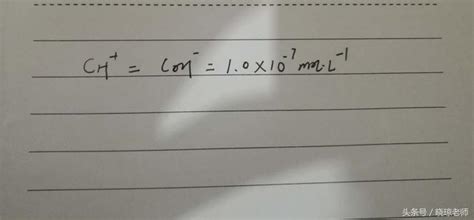 CH⁺ = COH⁻ = 1.0×10⁻⁷ mol·L⁻¹
头条号／晓琼老师